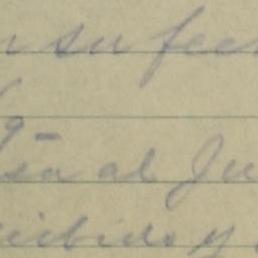 n su fec
9-
sa al Ju
cibido y